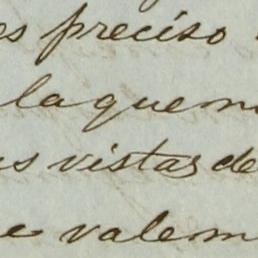 es preciso
la quem
us vistas de
e valem